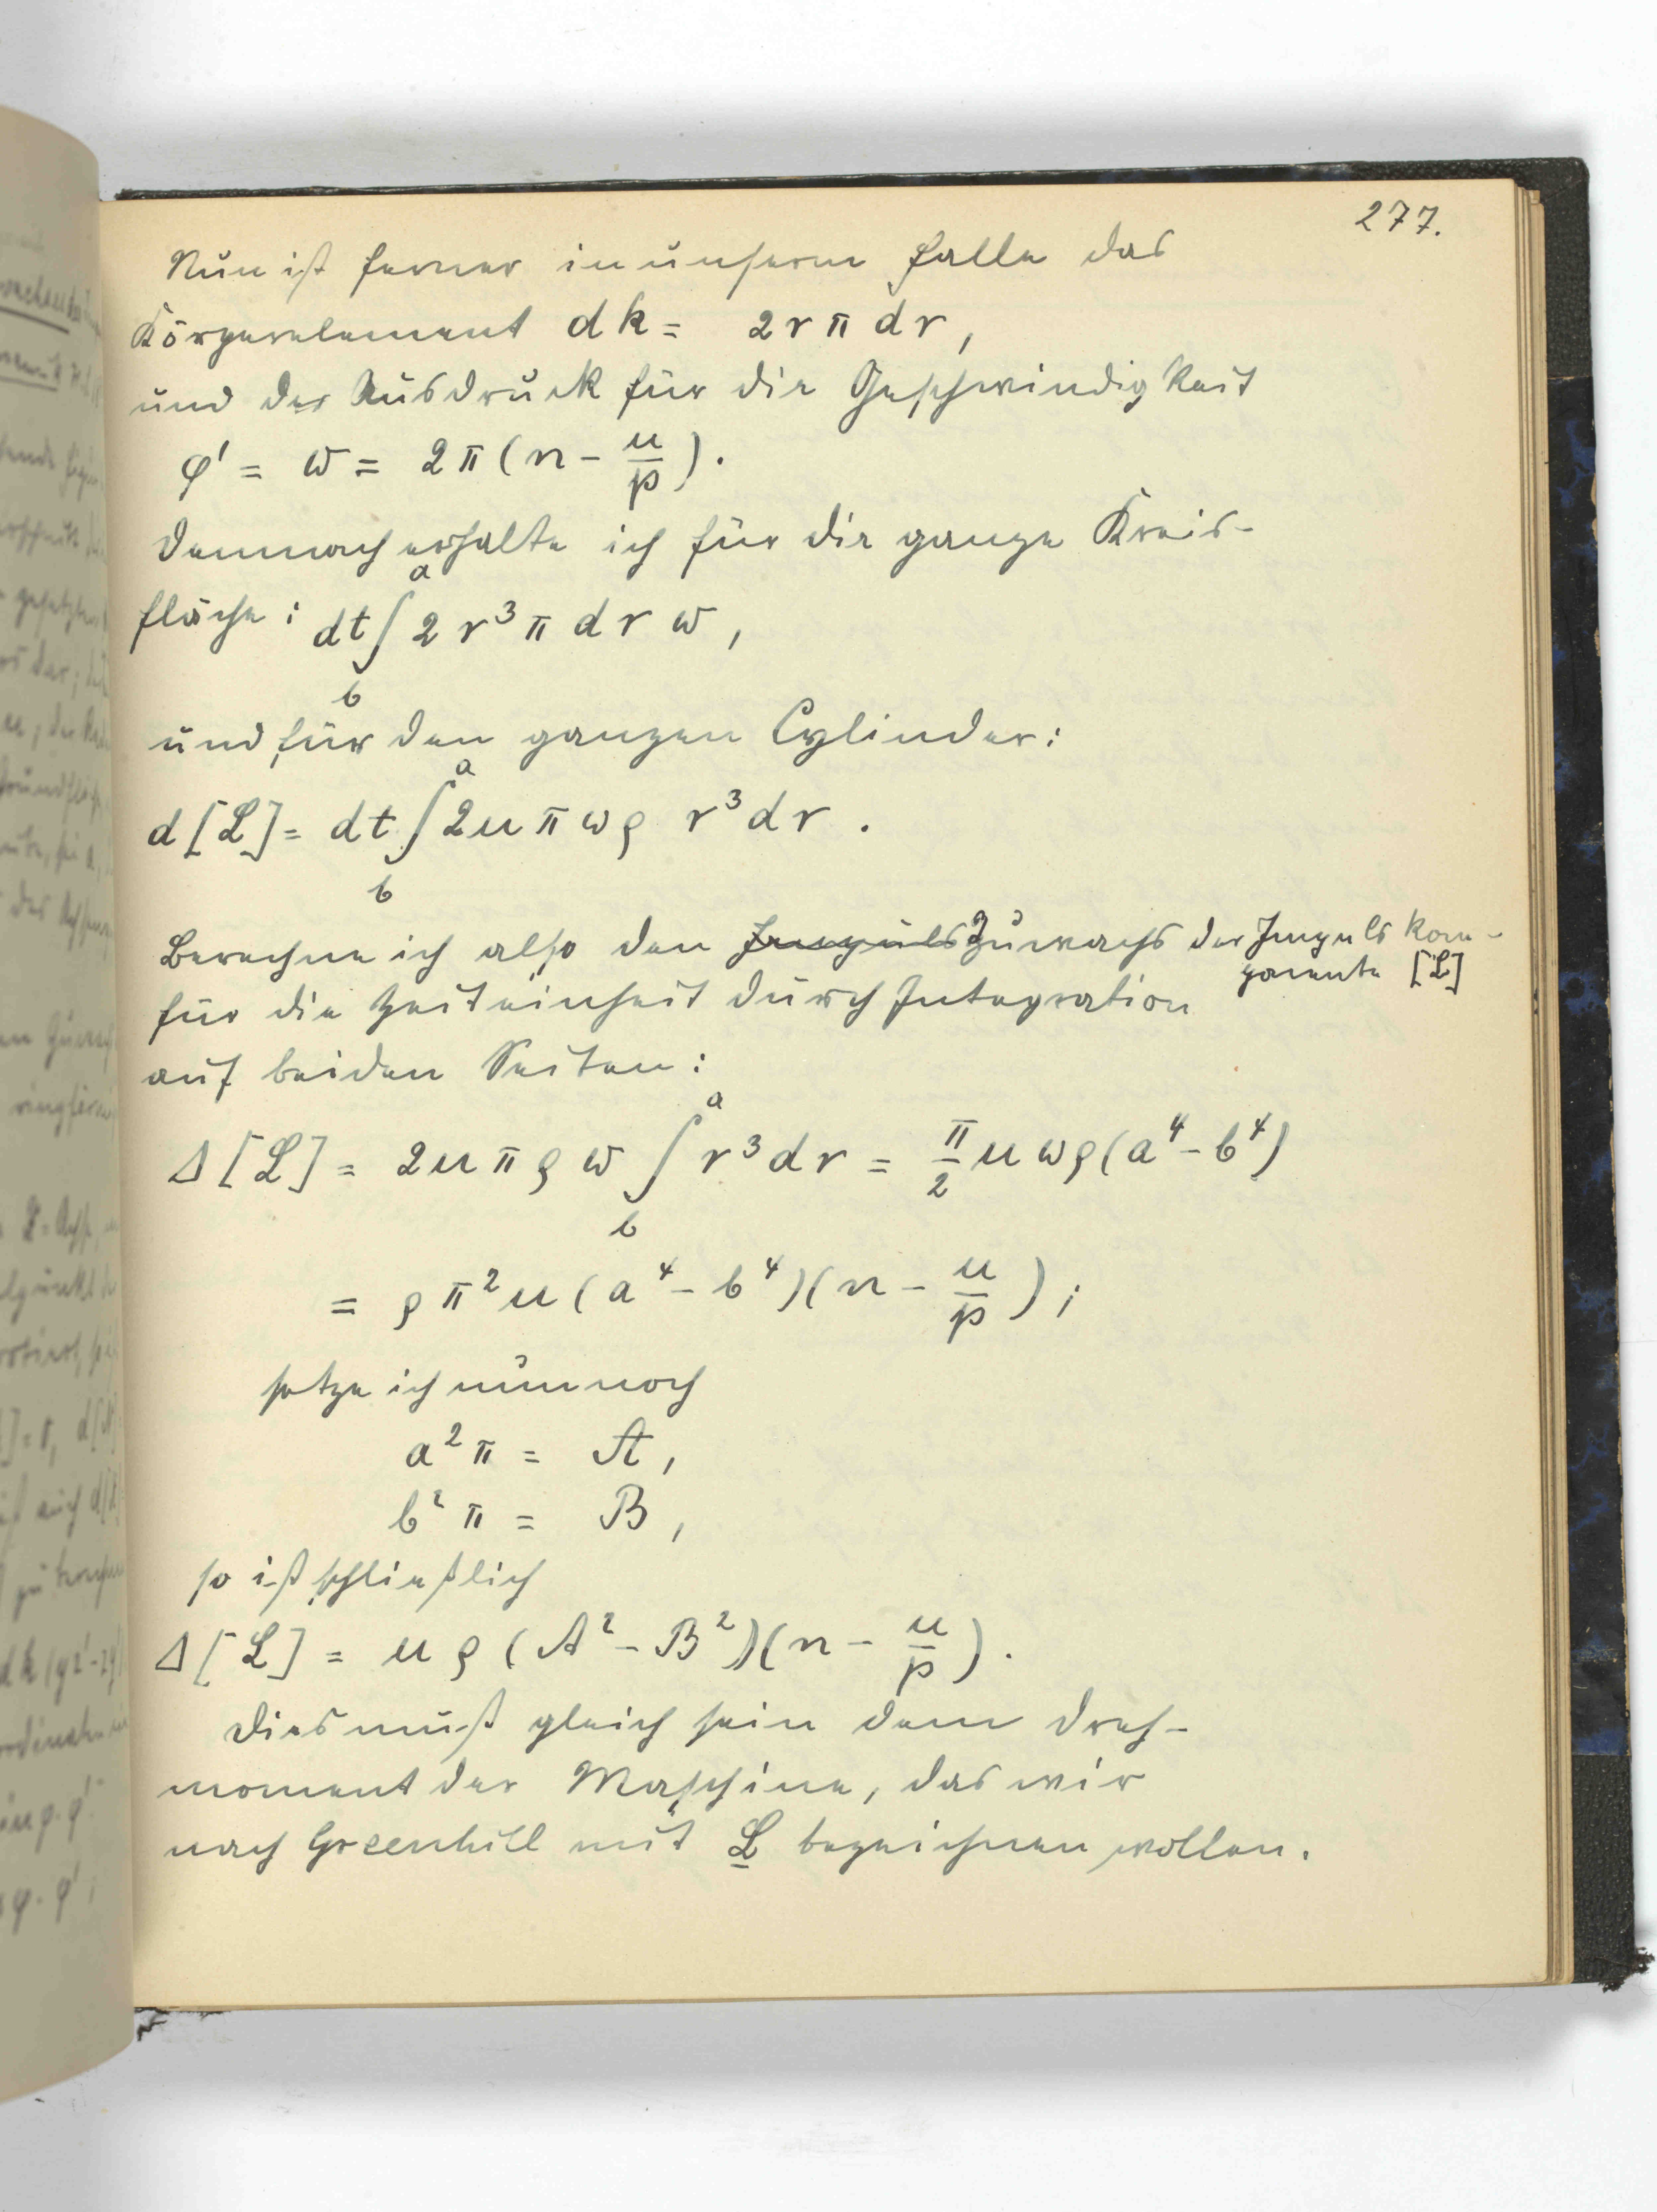 277.
Nun ist ferner in unserm Falle das
Körperelement dk = 2rπ dr,
und der Ausdruck für die Geschwindigkeit
φ' = ω = 2π(n - u/p).
Demnach erhalte ich für die ganze Kreis-
fläche: dt ∫_b^a 2r³π dr ω,
und für den ganzen Cylinder:
d[L] = dt ∫_b^a 2uπωρ r³dr.
Berechne ich also den Impuls Zuwachs der Impuls kom-
ponente [L]
für die Zeiteinheit durch Integration
auf beiden Seiten:
Δ[L] = 2uπρω ∫_b^a r³dr = π/2 uωρ(a⁴-b⁴)
= ρπ²u(a⁴-b⁴)(n - u/p);
setze ich nun noch
a²π = A,
b²π = B,
so ist schließlich
Δ[L] = uρ(A²-B²)(n - u/p).
Dies muß gleich sein dem Dreh-
moment der Maschine, das wir
nach Greenhill mit L bezeichnen wollen.